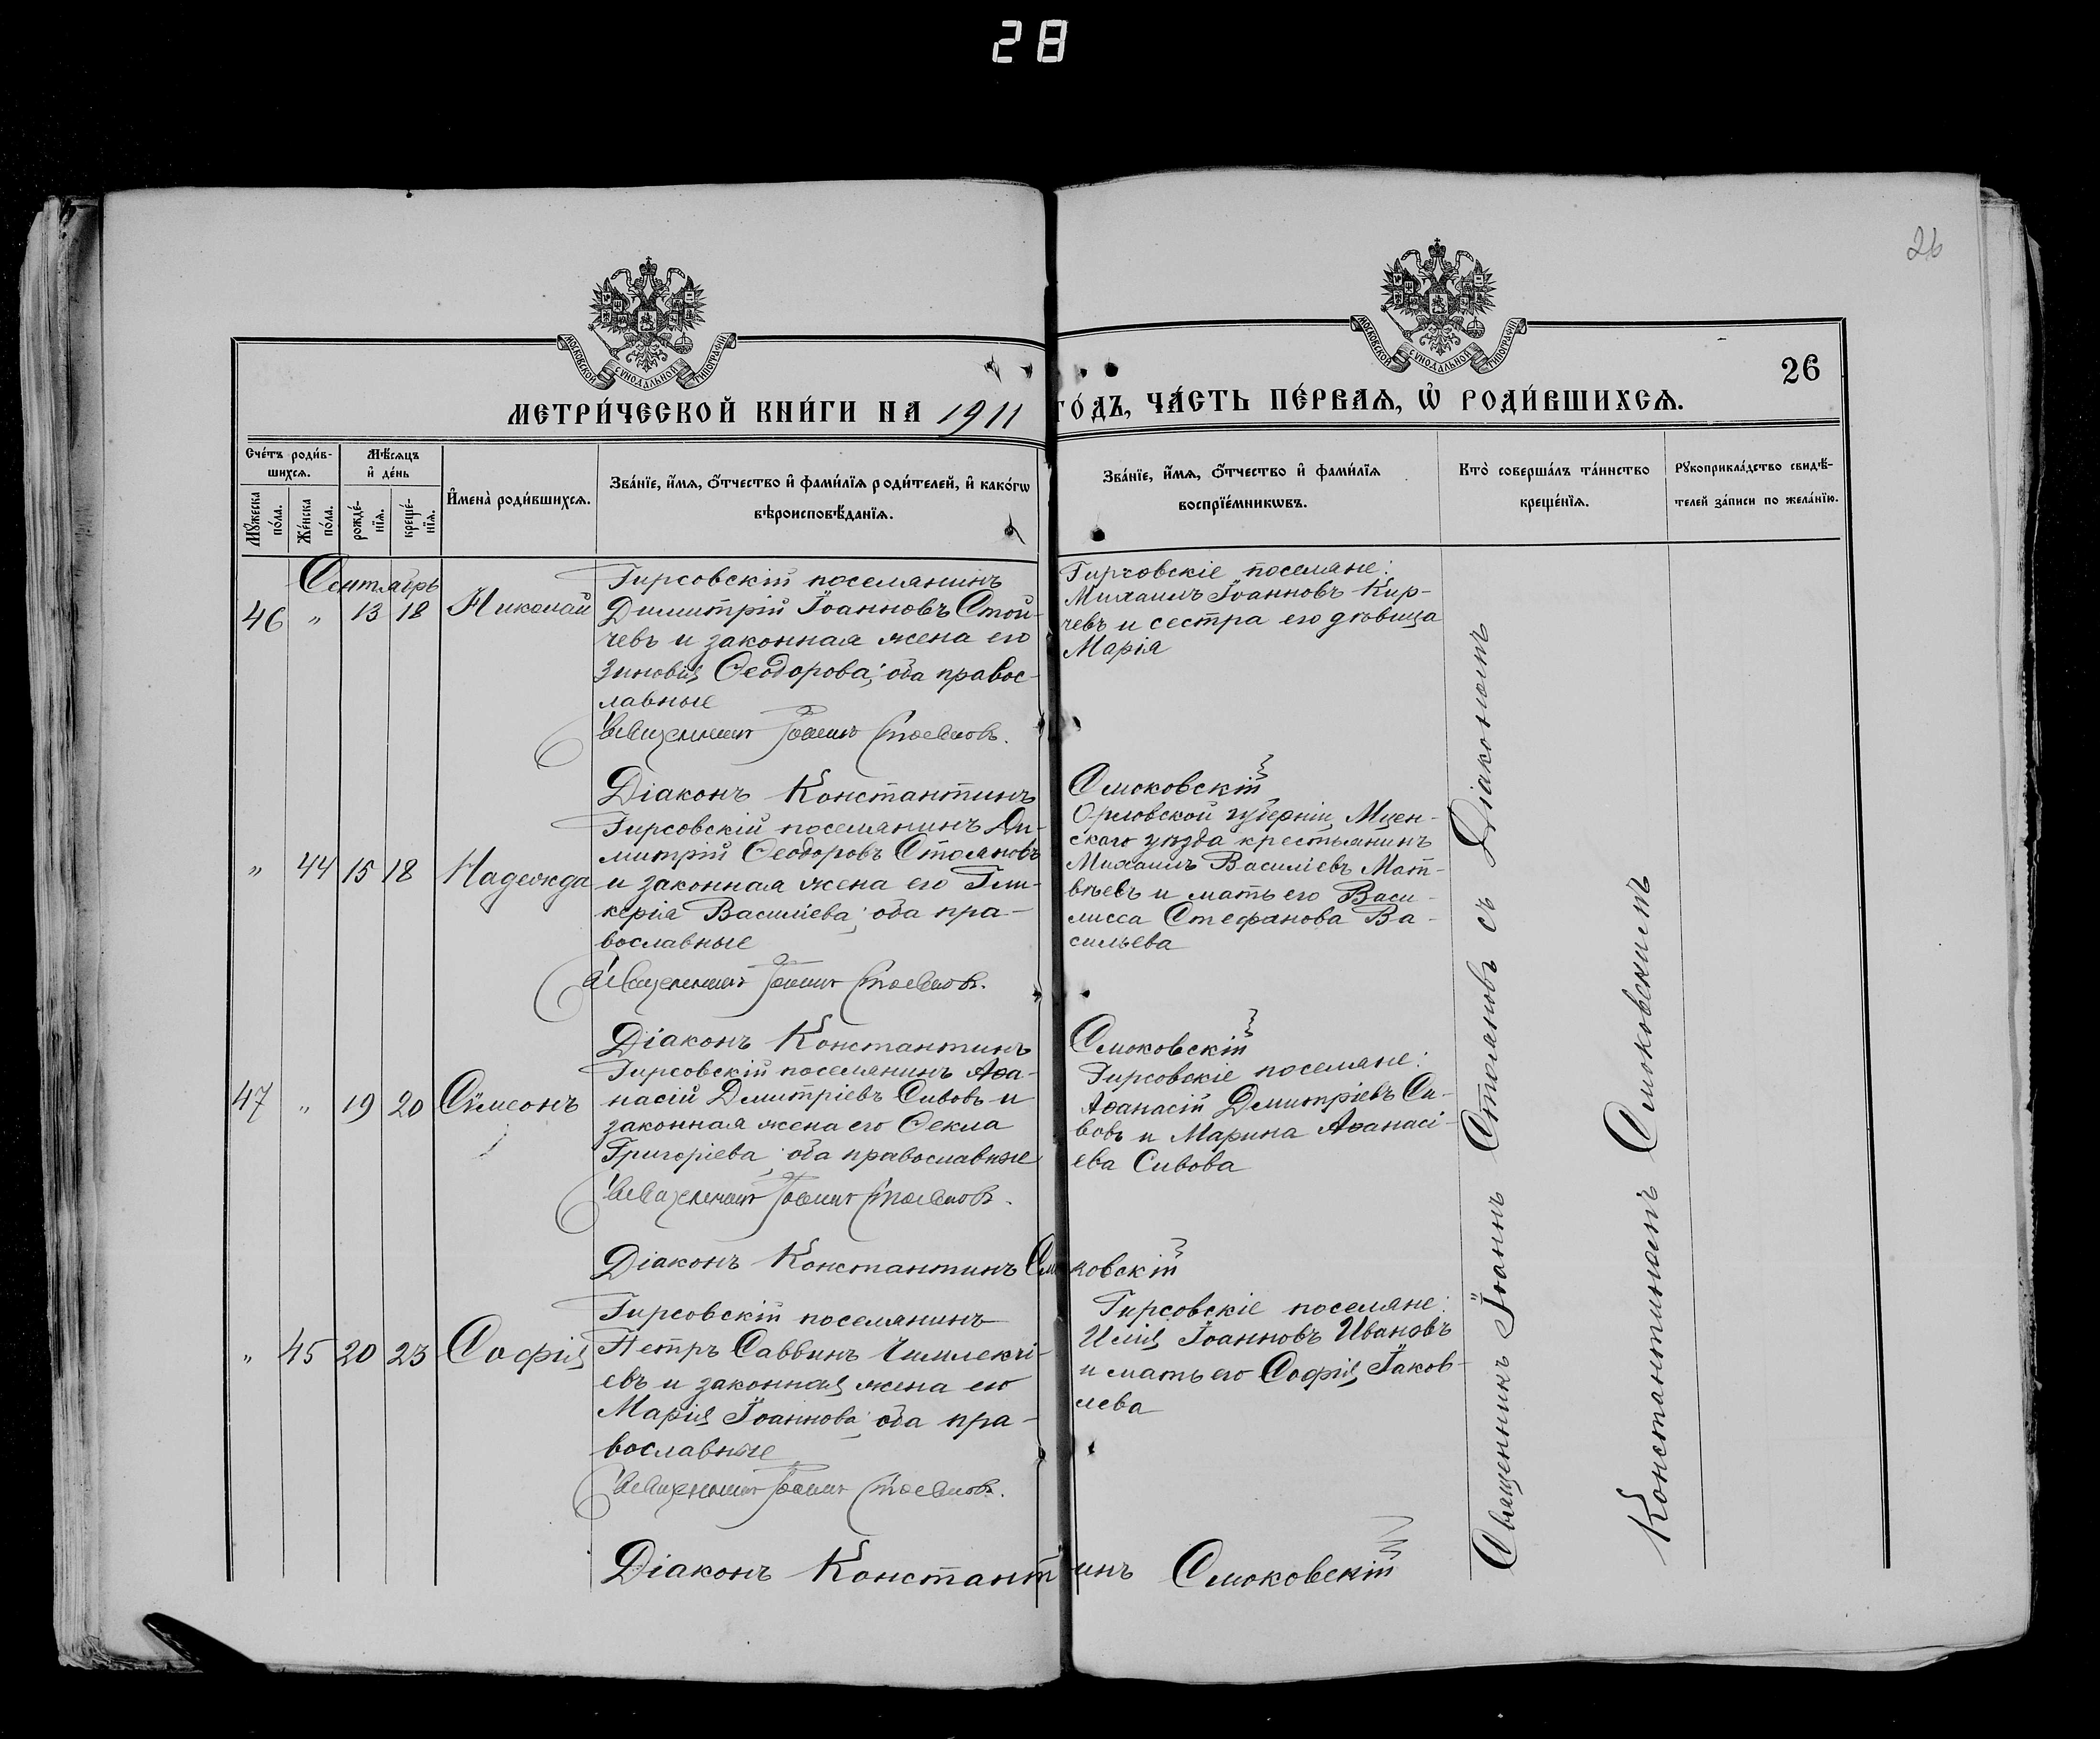 28
26
МОСКОВСКОЙ СѴНОДАЛЬНОЙ ТИПОГРАФІИ
МОСКОВСКОЙ СѴНОДАЛЬНОЙ ТИПОГРАФІИ
26
МЕТРИ́ЧЕСКОЙ КНИ́ГИ НА 1911 ГО́ДЪ, ЧА́СТЬ ПЕ́РВАѦ, Ѡ҆ РОДИ́ВШИХСѦ.
Сче́тъ роди́в-
шихсѧ.
Мꙋ́жеска по́ла.
Же́нска по́ла.
Мѣ́сѧцъ
и҆ де́нь
рожде́-
нїѧ.
креще́-
нїѧ.
И҆мена̀ роди́вшихсѧ.
Зва́нїе, и҆́мѧ, ѻ҆́тчество и҆ фами́лїѧ роди́телей, и҆ како́гѡ
вѣроисповѣ́данїѧ.
Зва́нїе, и҆́мѧ, ѻ҆́тчество и҆ фами́лїѧ
воспрїе́мникѡвъ.
Кто̀ соверша́лъ та́инство
креще́нїѧ.
Рꙋкоприкла́дство свидѣ́-
телей за́писи по жела́нїю.
Сентябрь
46 " 13 18 Николай
Гирсовскій поселянинъ
Димитрій Іоанновъ Стой-
чевъ и законная жена его
Зиновія Ѳеодорова; оба правос-
лавные
Священникъ Іоаннъ Стояновъ.
Діаконъ Константинъ Смоковскій
Гирсовскіе поселяне:
Михаилъ Іоанновъ Кир-
чевъ и сестра его дѣвица
Марія
" 44 15 18 Надежда
Гирсовскій поселянинъ Ди-
митрій Ѳеодоровъ Стояновъ
и законная жена его Гли-
керія Василіева; оба пра-
вославные
Священникъ Іоаннъ Стояновъ.
Діаконъ Константинъ Смоковскій
Орловской губерніи, Мцен-
скаго уѣзда крестьянинъ
Михаилъ Василіевъ Мат-
вѣевъ и мать его Васи-
лисса Стефанова Ва-
сильева
47 " 19 20 Сѵмеонъ
Гирсовскій поселянинъ Аѳа-
насій Димитріевъ Сивовъ и
законная жена его Ѳекла
Григоріева; оба православные
Священникъ Іоаннъ Стояновъ.
Діаконъ Константинъ Смоковскій
Гирсовскіе поселяне:
Аѳанасій Димитріевъ Си-
вовъ и Марина Аѳанасі-
ева Сивова
" 45 20 23 Софія
Гирсовскій поселянинъ
Петръ Саввинъ Чимлекчі-
евъ и законная жена его
Марія Іоаннова; оба пра-
вославные
Священникъ Іоаннъ Стояновъ.
Діаконъ Константинъ Смоковскій
Гирсовскіе поселяне:
Илія Іоанновъ Ивановъ
и мать его Софія Іаков-
лева
Священникъ Іоаннъ Стояновъ съ Діакономъ
Константиномъ Смоковскимъ